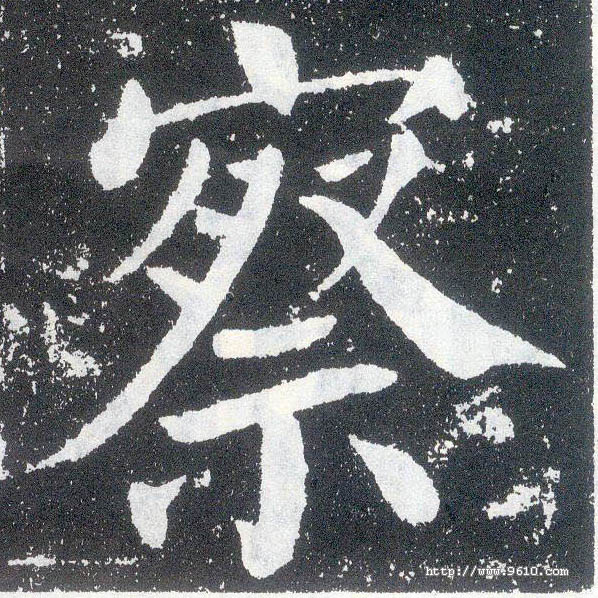 察
http://www.9610.com